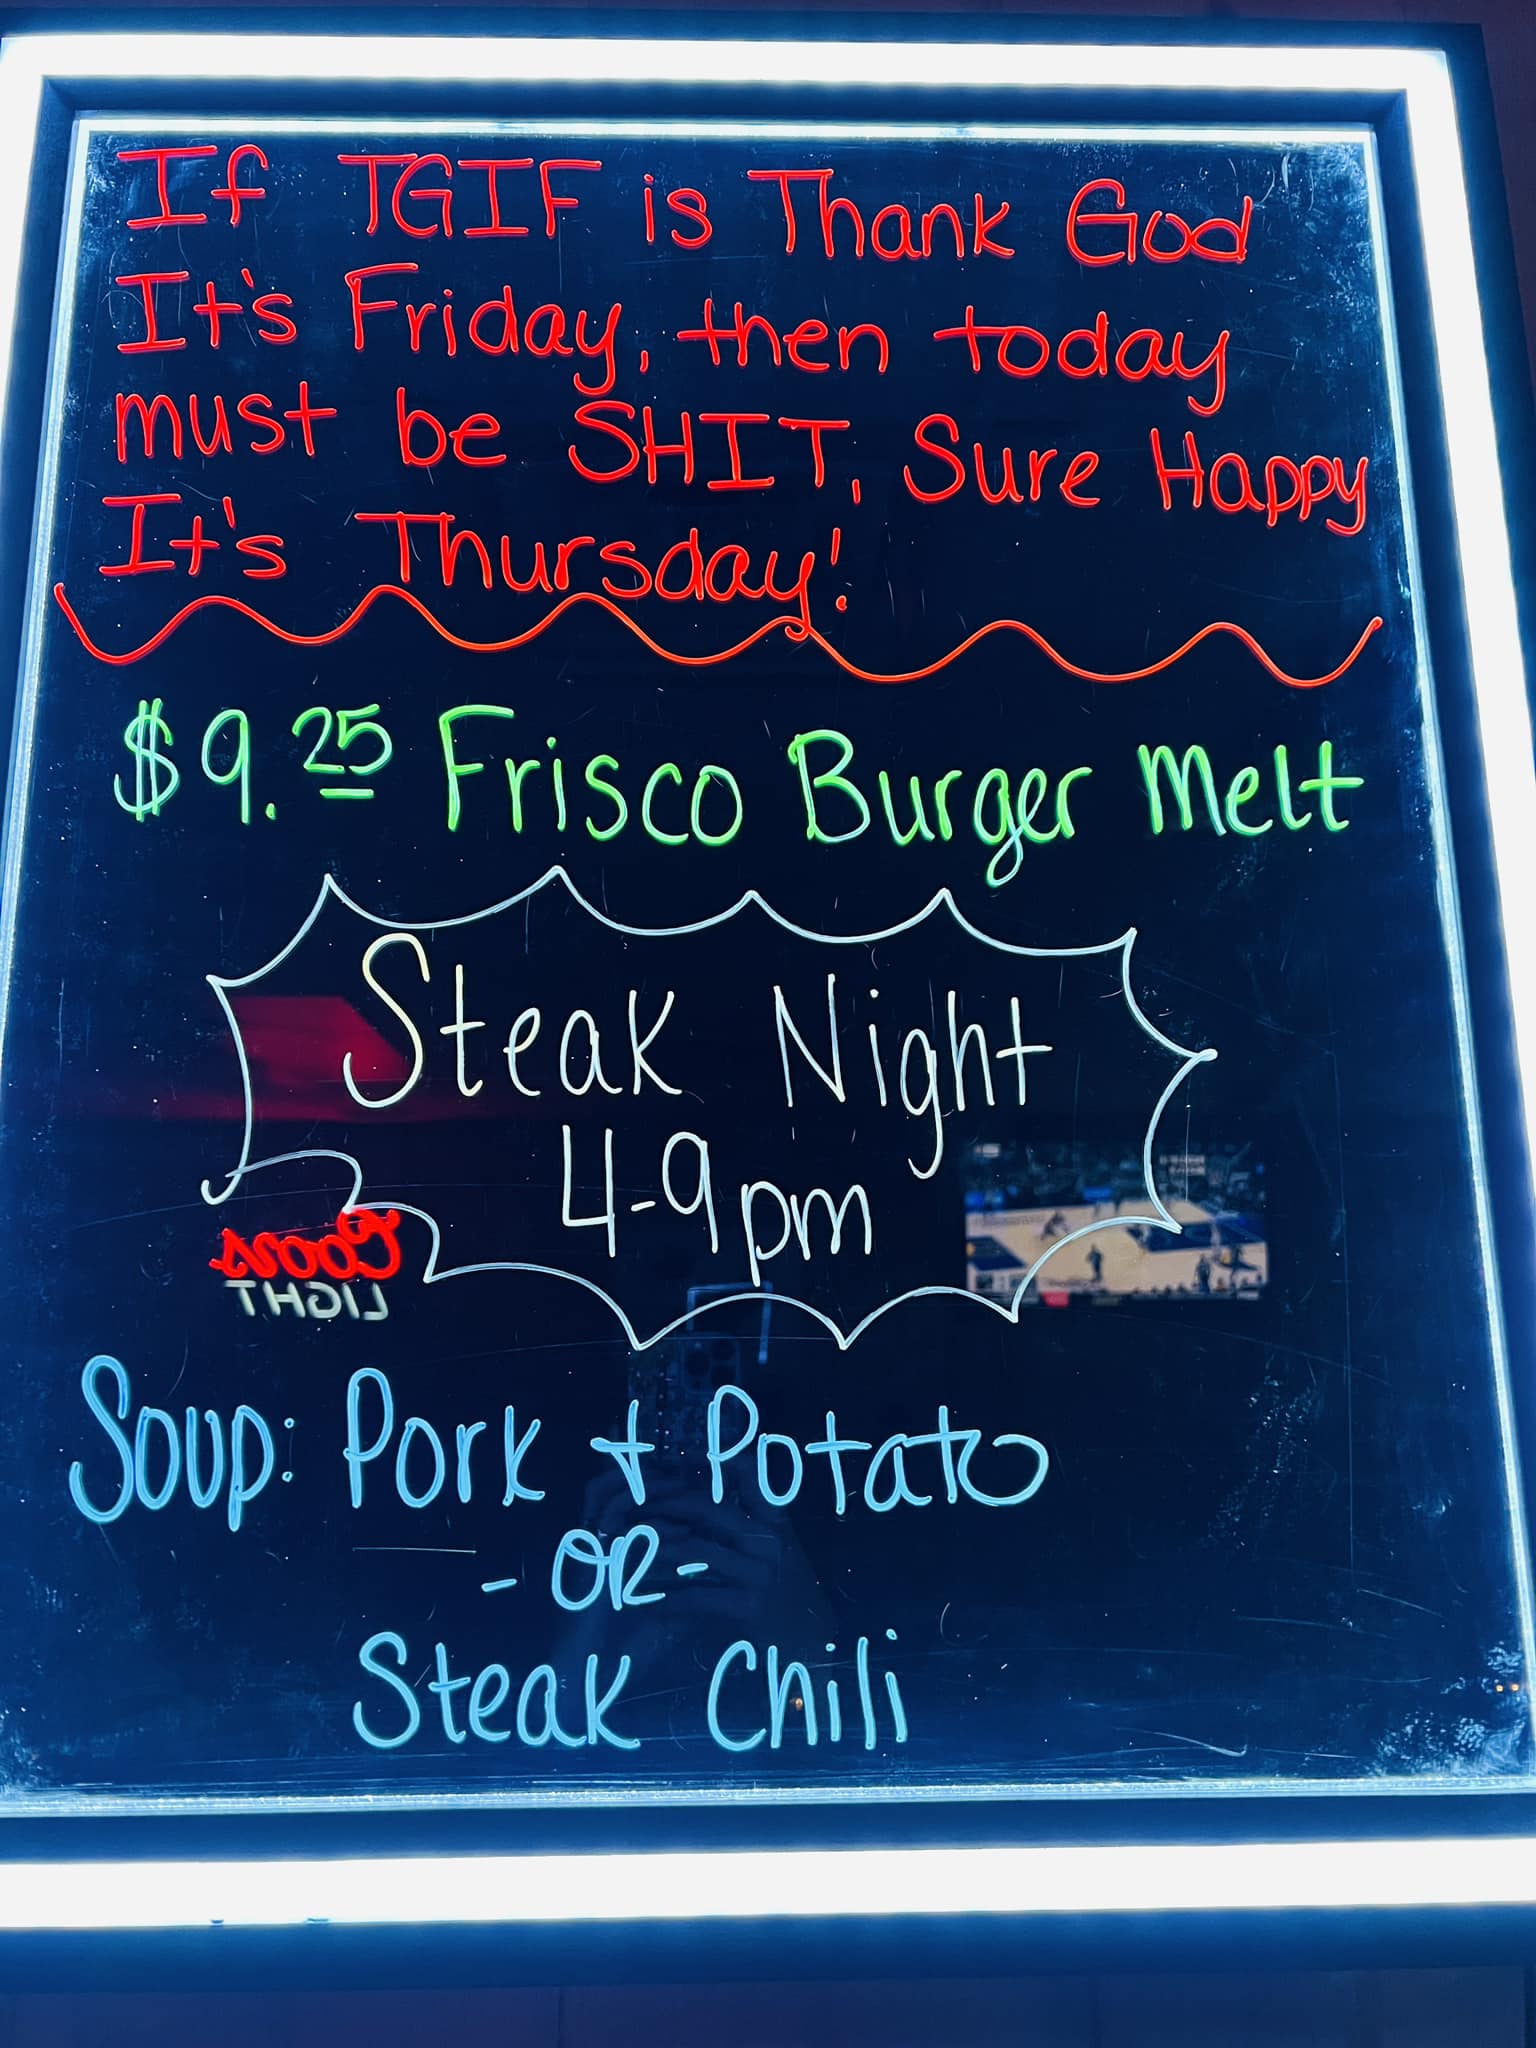 If TGIF is Thank God
It's Friday, then today
must be SHIT, Sure Happy
It's Thursday!
$9.25 Frisco Burger Melt
Steak Night
4-9pm
Coors
LIGHT
Soup: Pork + Potato
- OR -
Steak Chili